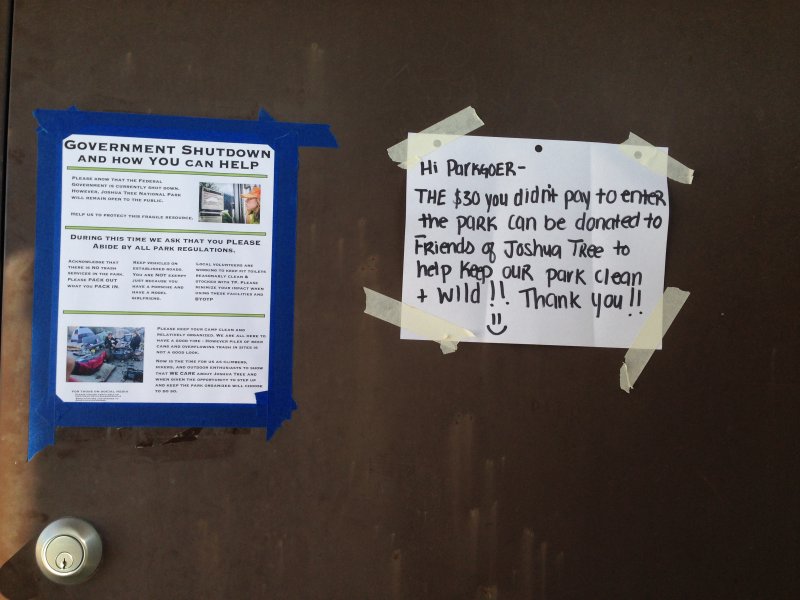 GOVERNMENT SHUTDOWN
AND HOW YOU CAN HELP
PLEASE KNOW THAT THE FEDERAL
GOVERNMENT IS CURRENTLY SHUT DOWN.
HOWEVER, JOSHUA TREE NATIONAL PARK
WILL REMAIN OPEN TO THE PUBLIC.
HELP US TO PROTECT THIS FRAGILE RESOURCE.
DURING THIS TIME WE ASK THAT YOU PLEASE
ABIDE BY ALL PARK REGULATIONS.
ACKNOWLEDGE THAT
THERE IS NO TRASH
SERVICES IN THE PARK.
PLEASE PACK OUT
WHAT YOU PACK IN.
KEEP VEHICLES ON
ESTABLISHED ROADS.
YOU ARE NOT EXEMPT
JUST BECAUSE YOU
HAVE A PORSCHE AND
HAVE A MODEL
GIRLFRIEND.
LOCAL VOLUNTEERS ARE
WORKING TO KEEP PIT TOILETS
REASONABLY CLEAN &
STOCKED WITH TP. PLEASE
MINIMIZE YOUR IMPACT WHEN
USING THESE FACILITIES AND
BYOTP
PLEASE KEEP YOUR CAMP CLEAN AND
RELATIVELY ORGANIZED. WE ARE ALL HERE TO
HAVE A GOOD TIME - HOWEVER PILES OF BEER
CANS AND OVERFLOWING TRASH IN SITES IS
NOT A GOOD LOOK.
NOW IS THE TIME FOR US AS CLIMBERS,
HIKERS, AND OUTDOOR ENTHUSIASTS TO SHOW
THAT WE CARE ABOUT JOSHUA TREE AND
WHEN GIVEN THE OPPORTUNITY TO STEP UP
AND KEEP THE PARK ORGANIZED WILL CHOOSE
TO DO SO.
FOR THOSE ON SOCIAL MEDIA
Hi PARKGOER-
THE $30 you didn't pay to enter
the PARK can be donated to
Friends of Joshua Tree to
help keep our park clean
+ Wild!! Thank you!!